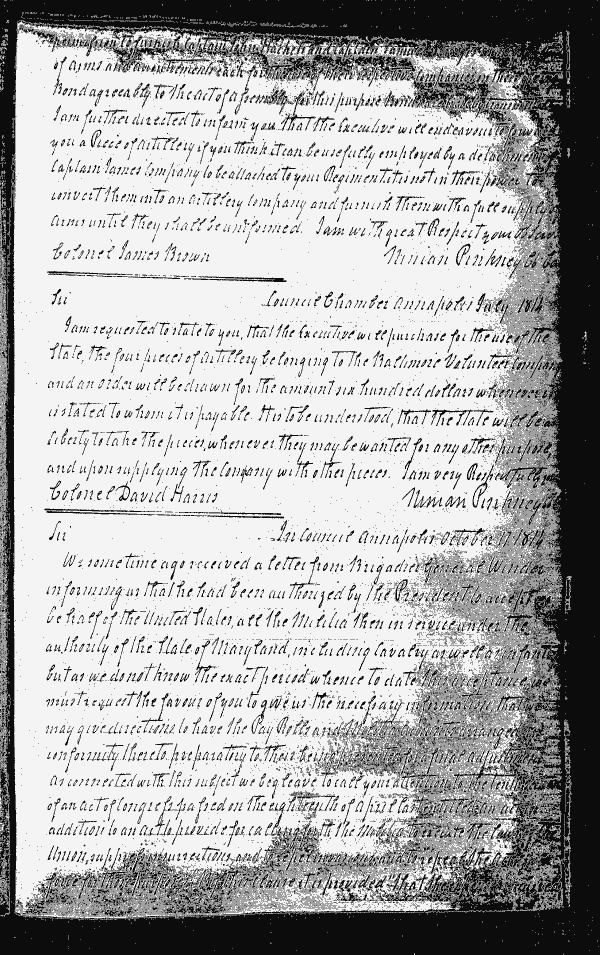 permission to furnish Captain John and Captain
of arms and accoutrements each for the use of their respective companies in
Bond agreeably to the act of assembly for this purpose
I am further directed to inform you, that the Executive will endeavour to
you a Piece of artillery if you think it can be usefully employed by a detachment of
Captain James Company to be attached to your Regiment it is not in their power to
convert them into an artillery company and furnish them with a full supply
arms until they shall be uniformed. I am with great Respect your
Colonel James Brown Ninian Pinkney
Sir Council Chamber Annapolis July 1814
I am requested to state to you, that the Executive will purchase for the use of the
State, the four pieces of Artillery belonging to the Baltimore Volunteer Company
and an order will be drawn for the amount six hundred dollars whenever it
is stated to whom it is payable. It is to be understood, that the State will be at
liberty to take the pieces, whenever they may be wanted for any other purpose,
and upon supplying the company with other pieces. I am very Respectfully
Colonel David Harris Ninian Pinkney
Sir In Council Annapolis October 17 1814
We some time ago received a letter from Brigadier General Winder
informing us that he had been authorized by the President to accept on
behalf of the United States, all the Militia then in service under the
authority of the State of Maryland, including cavalry as well as infantry
but as we do not know the exact period whence to date this acceptance, we
must request the favour of you to give us the necessary information that we
may give directions to have the Pay Rolls and arranged in
conformity thereto, preparatory to their being
As connected with this subject we beg leave to call your attention to the
of an act of Congress passed on the eighteenth of April last entitled an act in
addition to an act to provide for calling forth the Militia to execute the laws of the
Union, suppress insurrections, and repel invasions and to repeal the act
for these purposes clause it is provided "that the